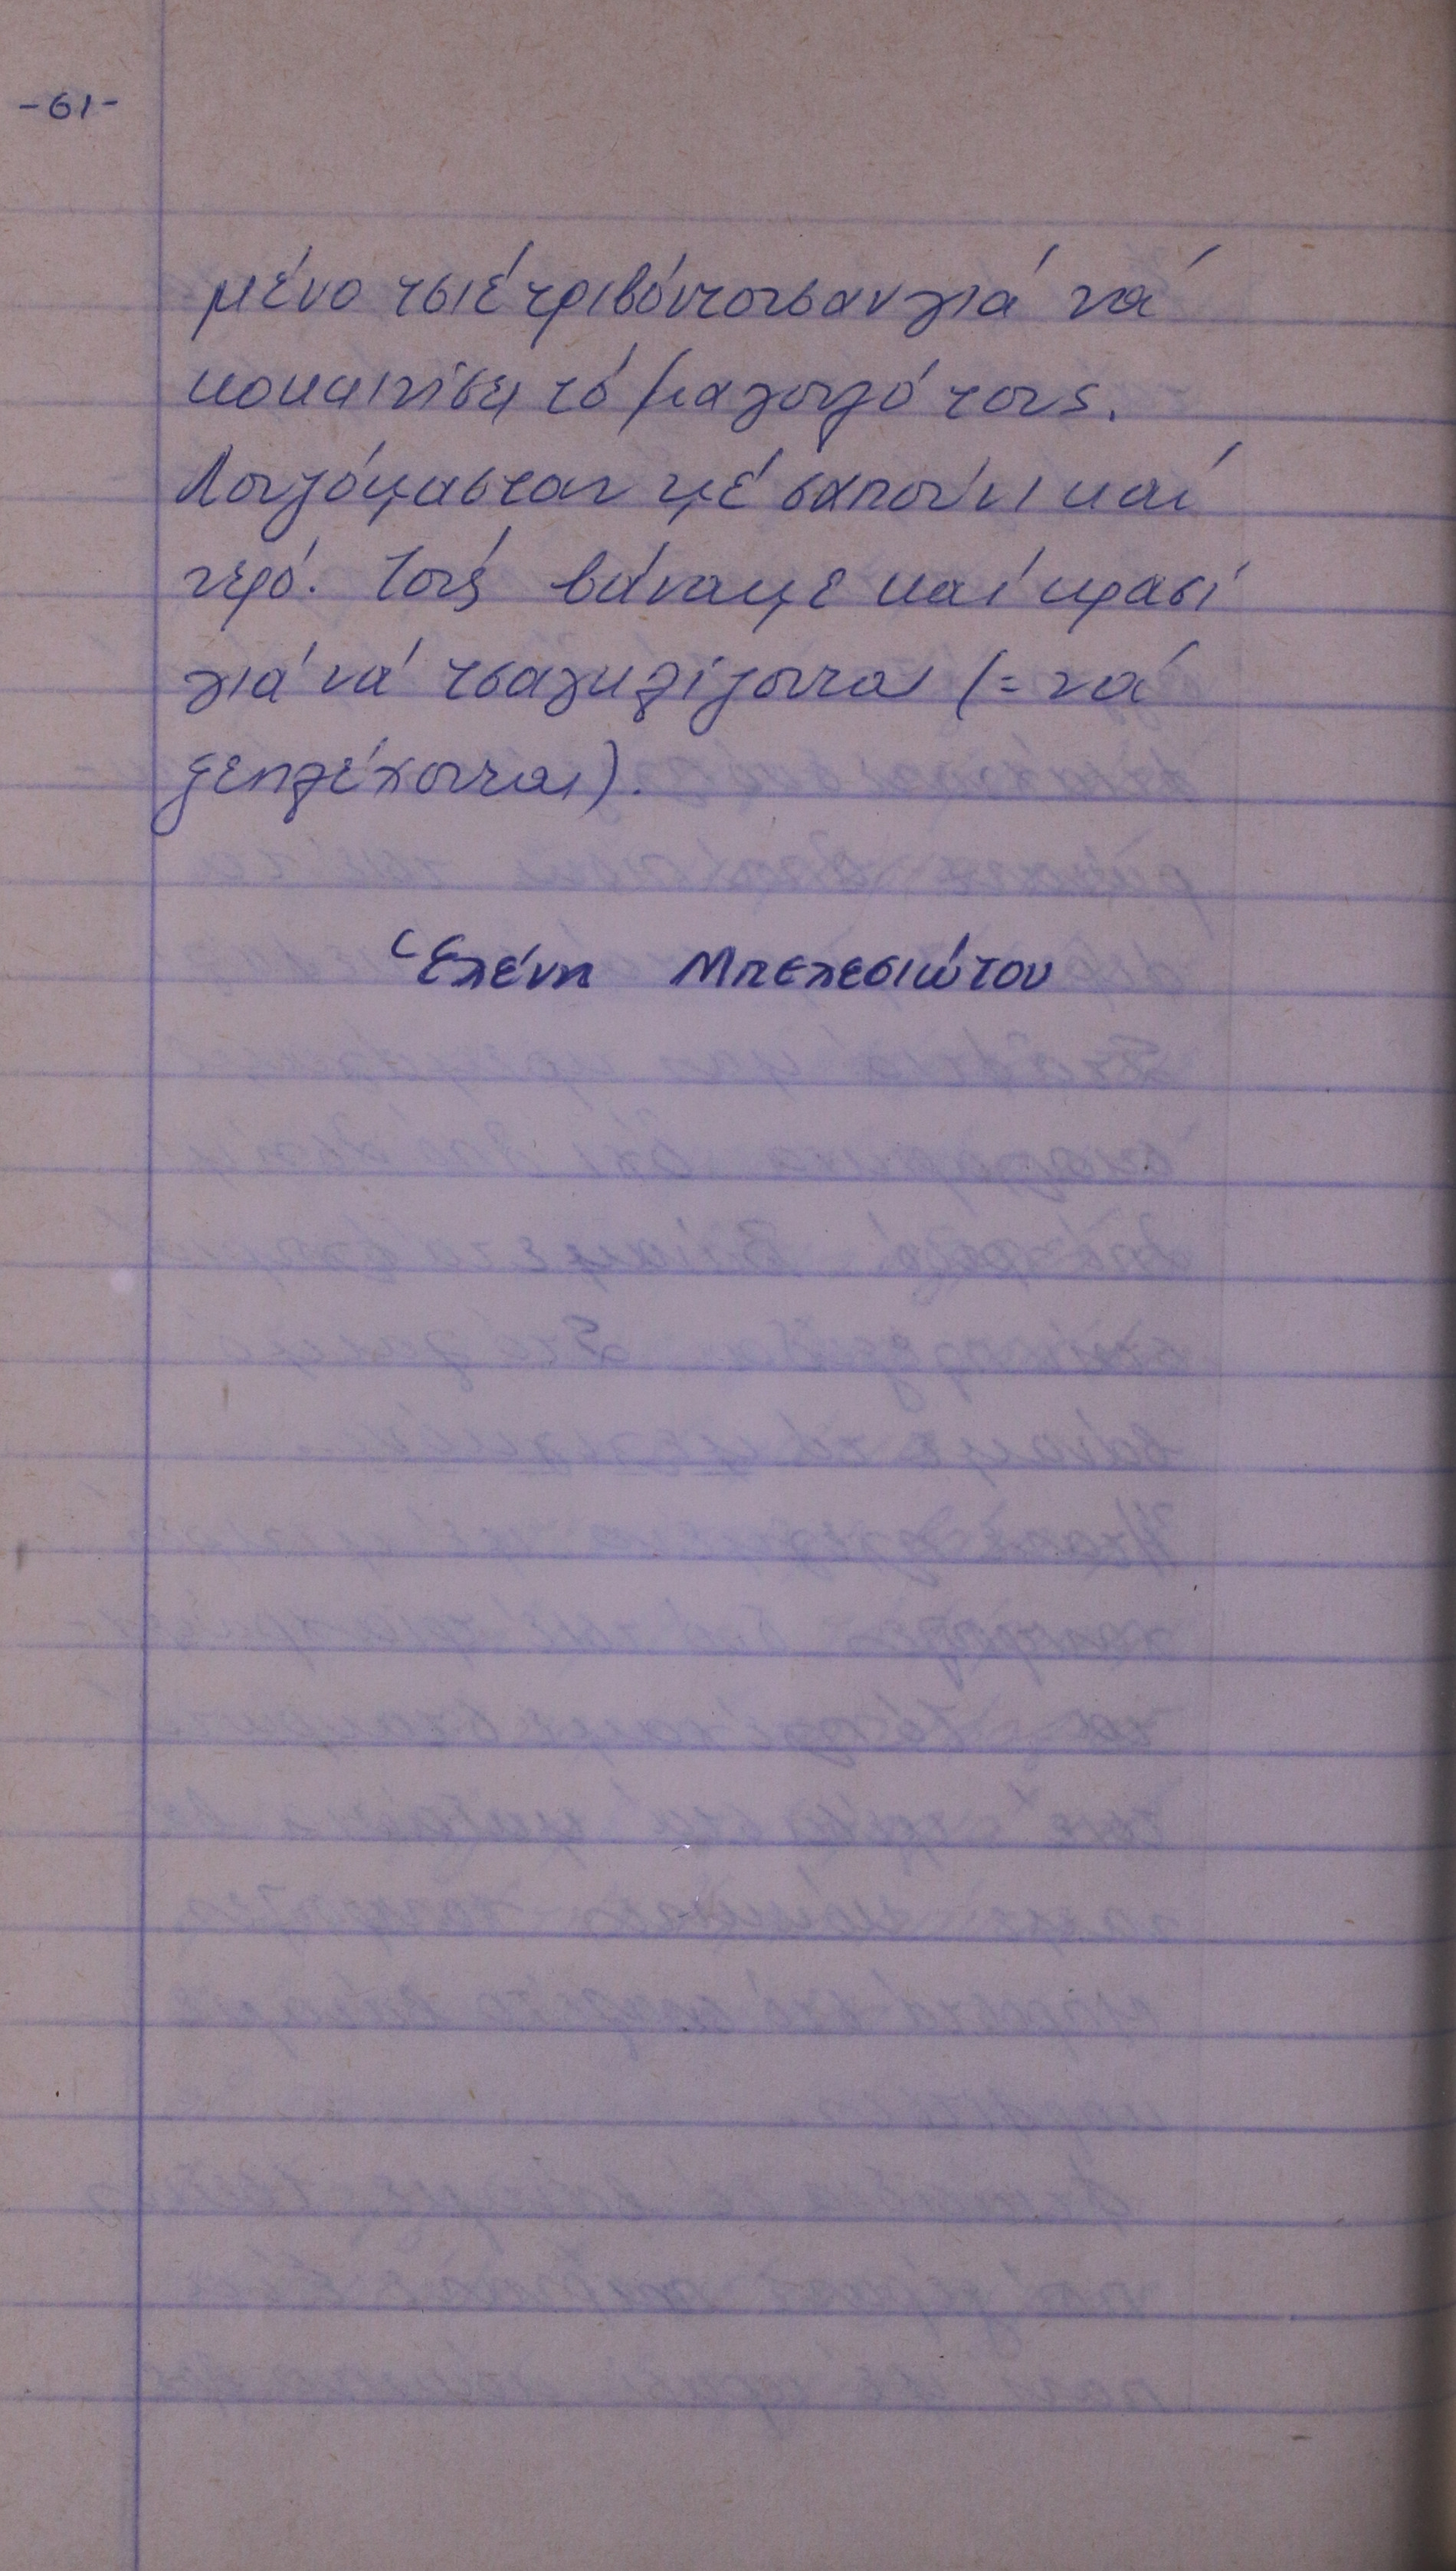 -61-
μένο τσιέ τριβόντουσαν γιά νά
κοκκινίση τό μαγουλό τους.
Λουζόμασταν μέ σαπούνι καί
νερό. Τούς βάναμε καί κρασί
γιά νά τσαλκιζίζουνται (= νά
ξεπλέκουνται).
Ἑλένη Μπελεσιώτου